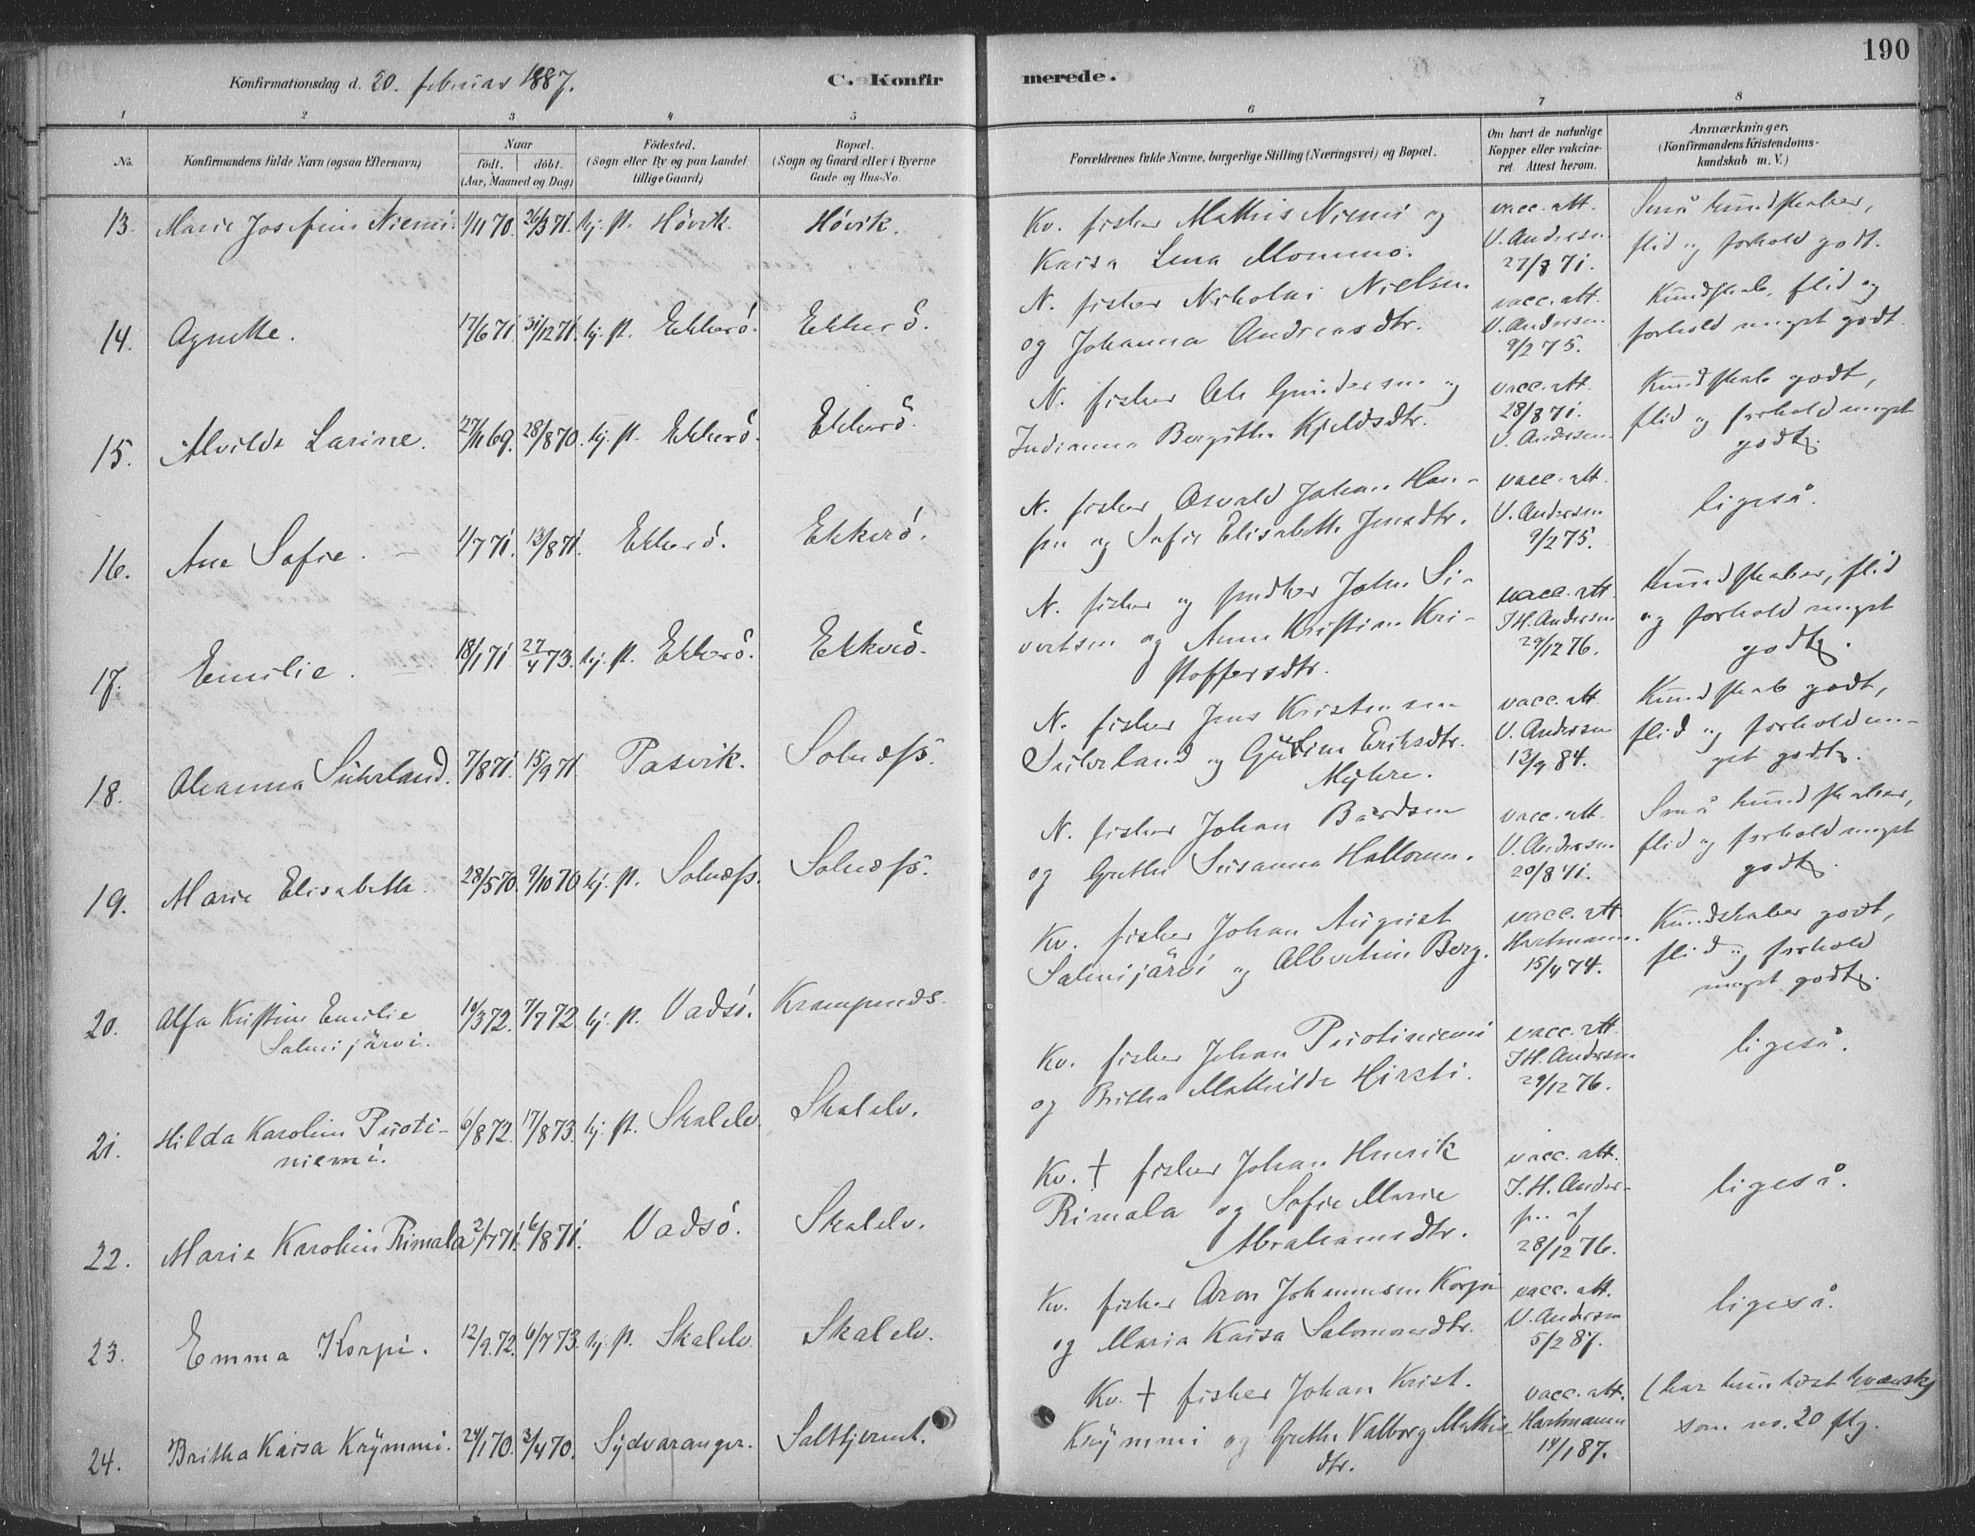 190
Konfirmationsdag d. 20. februar 1887.
C. Konfirmerede.
1 2 3 4 5 6 7 8
No.
Konfirmandens fulde Navn (ogsaa Efternavn)
Naar
født. døbt.
(Aar, Maaned og Dag)
Fødested.
(Sogn eller By og paa Landet
tillige Gaard)
Bopæl.
(Sogn og Gaard eller i Byerne
Gade og Hus-No.
Forældrenes fulde Navne, borgerlige Stilling (Næringsvei) og Bopæl.
Om havt de naturlige
Kopper eller vakcine-
ret. Attest herom.
Anmærkninger.
(Konfirmandens Kristendoms-
kundskab m. V.)
13. Marie Josefine Niemi. 1/11 70. 26/3 71. hj. st. Høvik. Høvik.
Kv. fisker Mathis Niemi og
Kaisa Lena Mommo.
vacc. att.
V. Andersen
27/8 71.
Små kundskaber,
flid og forhold godt.
14. Agnethe. 17/6 71 31/12 71. hj. st. Ekkerö. Ekkerö.
N. fisker Nikolai Nielsen
og Johanna Andreasdtr.
vacc. att.
V. Andersen
9/2 75.
Kundskab, flid og
forhold meget godt.
15. Alvilde Larine. 27/11 69. 28/8 70. hj. st. Ekkerö. Ekkerö.
N. fisker Ole Gundersen og
Indianna Bergithe Kjeldsdtr.
vacc. att.
28/8 71.
V. Andersen
Kundskab godt,
flid og forhold meget
godt.
16. Ane Sofie. 1/7 71. 13/8 71. Ekkerö. Ekkerö.
N. fisker Osvald Johan Han-
sen og Sofie Elisabeth Jensdtr.
vacc. att.
V. Andersen
9/2 75.
ligeså.
17. Emilie. 18/1 71 27/4 73. hj. st. Ekkerö. Ekkerö.
N. fisker og snedker John Si-
vertsen og Anne Kristine Kri-
stoffersdtr.
vacc. att.
J H. Andersen
29/12 76.
Kundskaber, flid
og forhold meget
godt.
18. Oleanna Suhrland. 7/8 71. 15/9 71 Pasvik. Solnæss.
N. fisker Jens Kristensen
Suhrland og Gurine Eriksdtr.
Myhre.
vacc. att.
V. Andersen
13/9 84.
Kundskab godt,
flid og forhold me-
get godt.
19. Marie Elisabeth. 28/5 70. 9/10 70 hj. st. Solnæss. Solnæss.
N. fisker Johan Bårdsen
og Grethe Susanna Halloenn.
vacc. att.
V. Andersen
20/8 71.
Små kundskaber,
flid og forhold meget
godt.
20. Alfa Kristine Emilie
Salmijärvi. 10/3 72. 7/7 72 hj. st. Vadsö. Krampenæs.
Kv. fisker Johan August
Salmijärvi og Albertine Berg.
vacc. att.
Hartmann.
15/4 74.
Kundskaber godt,
flid og forhold
meget godt.
21. Hilda Karoline Puoti-
niemi. 6/8 72. 17/8 73. hj. st. Skalelv. Skalelv.
Kv. fisker Johan Puotiniemi
og Britha Mathilde Hirsti.
vacc. att.
J H. Andersen
29/12 76.
ligeså.
22. Marie Karoline Rimala. 2/7 71. 6/8 71. Vadsö. Skalelv.
Kv. † fisker Johan Henrik
Rimala og Sofie Marie
Abrahamsdtr.
vacc. att.
J. H. Ander-
sen af
28/12 76.
ligeså.
23. Emma Korpi. 12/9 72. 6/7 73. hj. st. Skalelv Skalelv.
Kv. fisker Aron Johannesen Korpi
og Maria Kaisa Salomonsdtr.
vacc. att.
V. Andersen
5/2 87.
ligeså.
24. Britha Kaisa Krÿmmi. 24/1 70. 3/4 70. Sydvaranger. Saltkjernet.
Kv. † fisker Johan Krist.
Krÿmmi og Grethe Valborg Mathis-
dtr.
vacc. att.
Hartmann
14/1 87.
(har kun læst kvænsk)
som no. 20 flg.